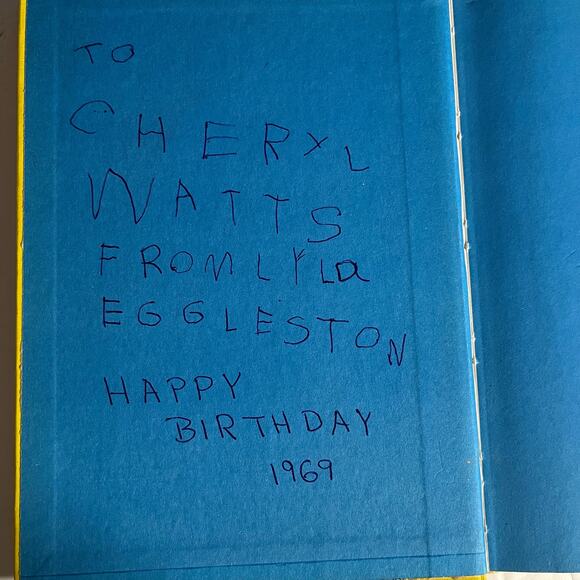 TO
CHERYL
WATTS
FROM LYLa
EGGLESTON
HAPPY
BIRTHDAY
1969